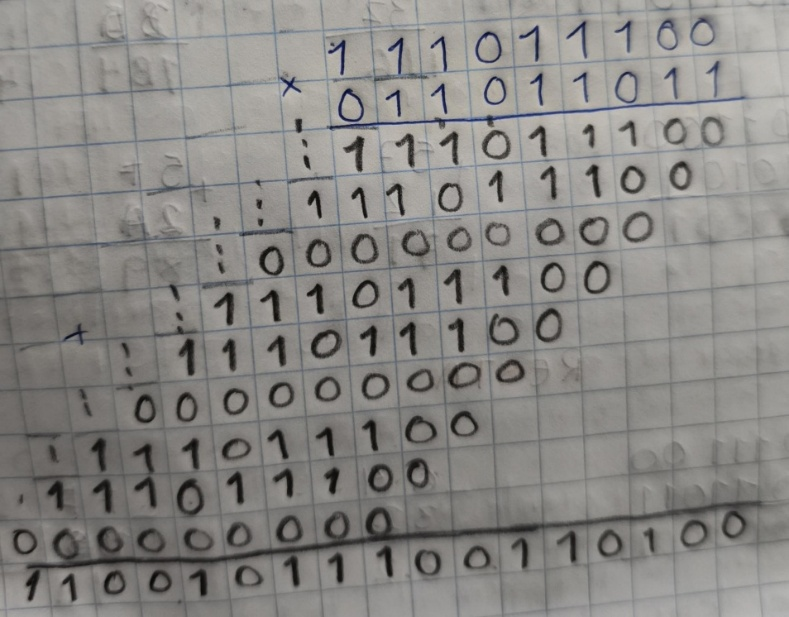 111011100
× 011011011
111011100
111011100
000000000
111011100
+ 111011100
000000000
111011100
111011100
000000000
11001011100110100